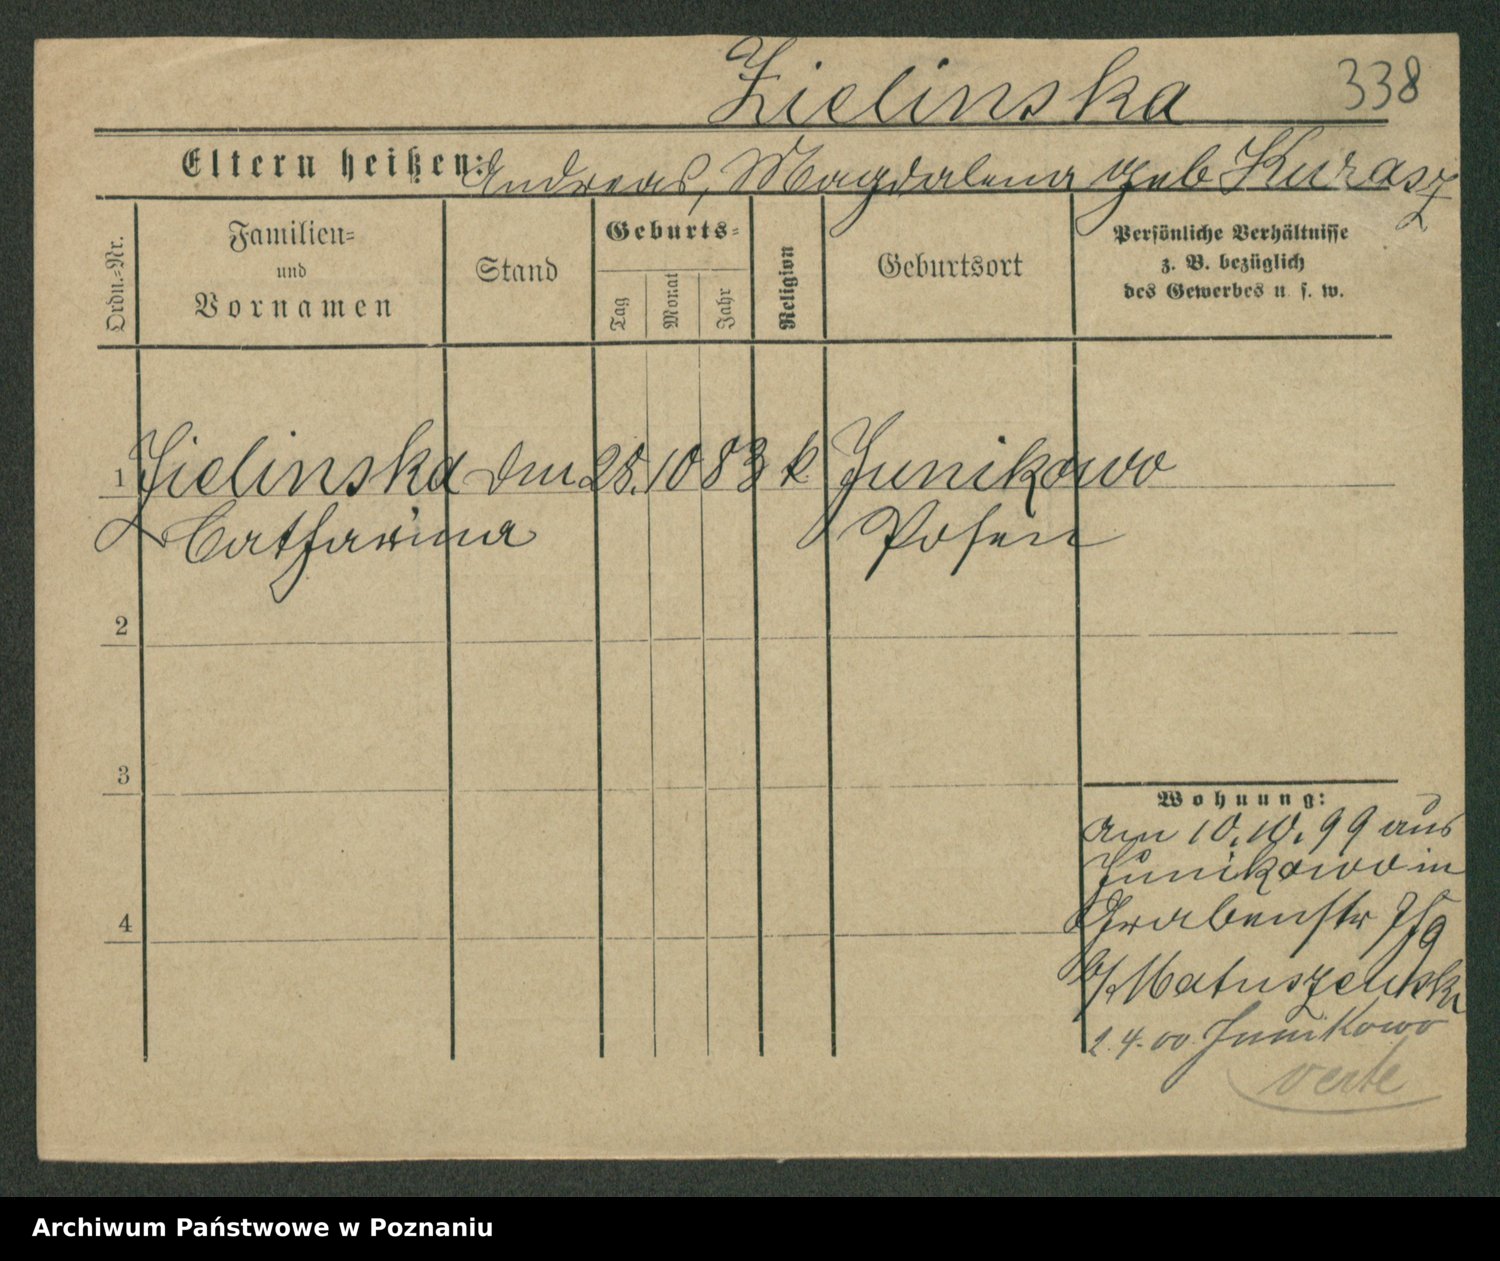 Zielinska 338
Eltern heißen: Andreas, Magdalena geb Kurasz
Ordn.=Nr.
Familien=
und
Vornamen
Stand
Geburts=
Tag
Monat
Jahr
Religion
Geburtsort
Persönliche Verhältnisse
z. B. bezüglich
des Gewerbes u. s. w.
1 Zielinska 28. 10 83 k Junikowo
Catharina Posen
2
3
4
Wohnung:
am 10. 10. 99 aus
Junikowo in
Grabenstr
b/ Matuszewski
2. 4. 00 Junikowo
verte
Archiwum Państwowe w Poznaniu